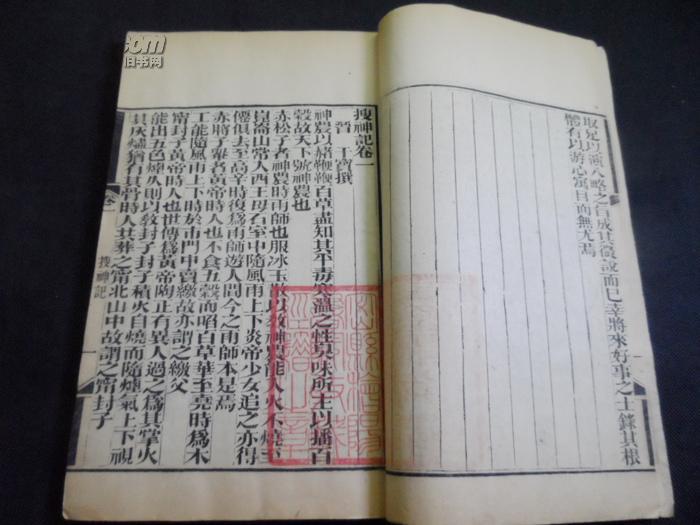 取足以演八略之旨成其微說而已幸將來好事之士錄其根
體有以游心寓目而無尤焉
搜神記卷一
晉 干寶撰
神農以赭鞭鞭百草盡知其平毒寒溫之性臭味所主以播百
穀故天下號神農也
赤松子者神農時雨師也服冰玉散以敎神農能入火不燒至
崑崙山常入西王母石室中隨風雨上下炎帝少女追之亦得
僊俱去至高辛時復爲雨師遊人間今之雨師本是焉
赤將子轝者黃帝時人也不食五穀而啗百草華至堯時爲木
工能隨風雨上下時於市門中賣繳故亦謂之繳父
甯封子黃帝時人也世傳爲黃帝陶正有異人過之爲其掌火
能出五色煙久則以敎封子封子積火自燒而隨煙氣上下視
其灰燼猶有其骨時人共葬之甯北山中故謂之甯封子
卷一
搜神記
一
.com
旧书网